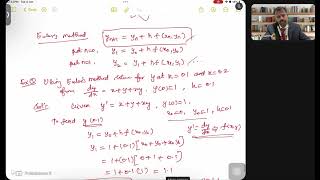 Euler's method
yn+1 = yn + h f(xn, yn)
put n=0, y1 = y0 + h f(x0, y0)
put n=1, y2 = y1 + h f(x1, y1)
Using Euler's method solve for y at x = 0.1 and x = 0.2
from dy/dx = x+y+xy, y(0)=1, h = 0.1
Soln: Given y' = x+y+xy, y(0)=1.
x0=0, y0=1, h=0.1
To find y(0.1)
y1 = y0 + h f(x0, y0)
y' = dy/dx = f(x,y)
y1 = 1 + (0.1) [x0 + y0 + x0 y0]
= 1 + (0.1) [0 + 1 + 0.1]
= 1 + 0.1 (1) = 1.1